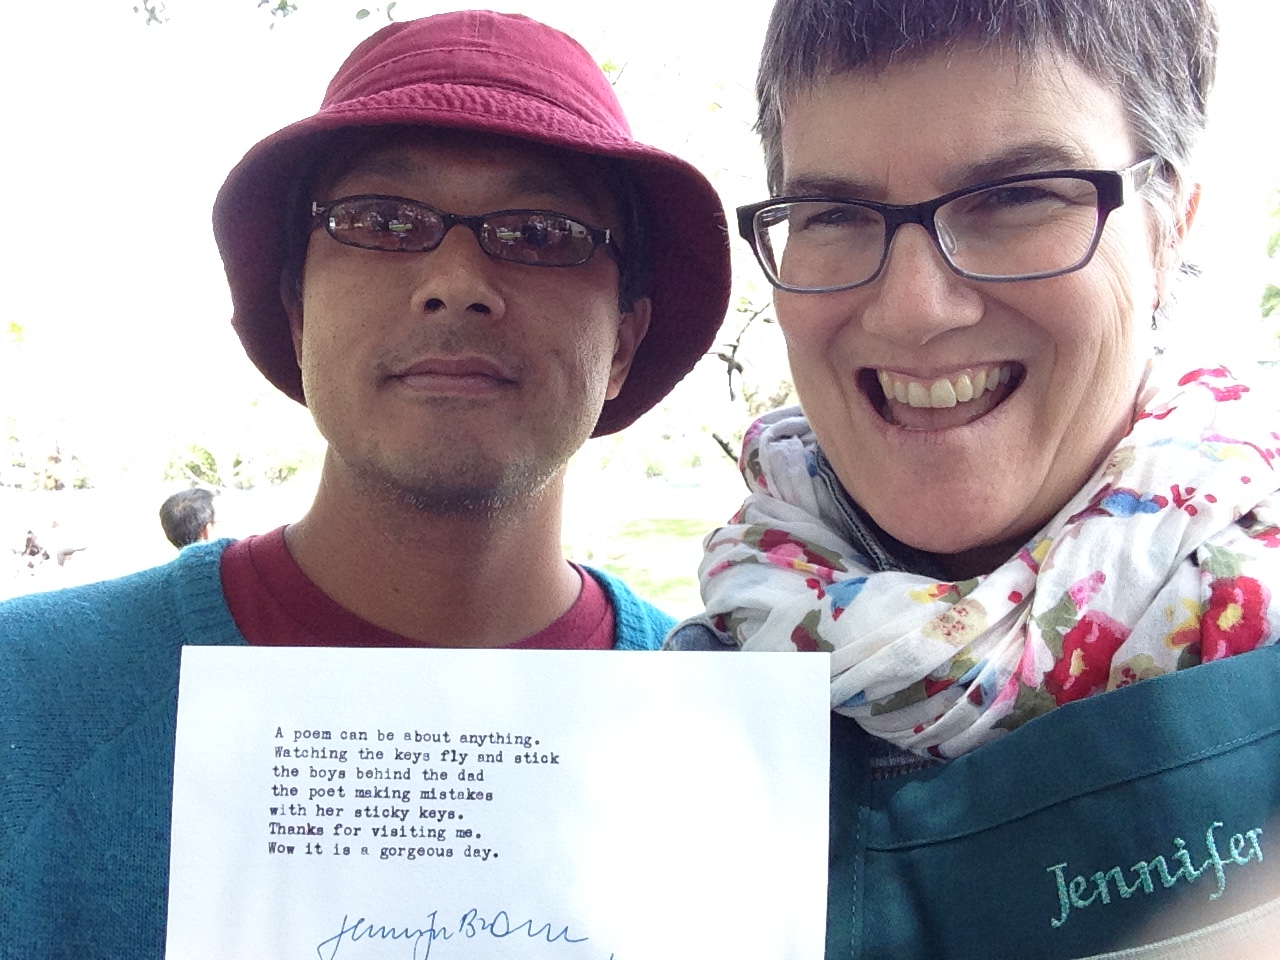 A poem can be about anything.
Watching the keys fly and stick
the boys behind the dad
the poet making mistakes
with her sticky keys.
Thanks for visiting me.
Wow it is a gorgeous day.
Jennifer
Jennifer